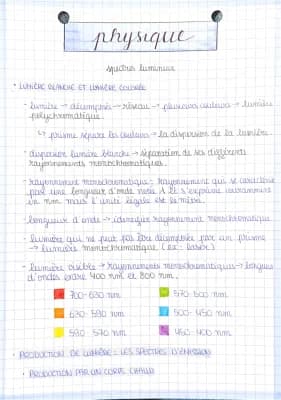 physique
spectres lumineux
• LUMIÈRE BLANCHE ET LUMIÈRE COLORÉE
- lumière → décomposée → réseau → plusieurs couleurs → lumière
polychromatique.
↳ prisme sépare les couleurs → la dispersion de la lumière.
- dispersion lumière blanche → séparation de ses différents
rayonnements monochromatiques.
- rayonnement monochromatique : rayonnement qui se caractérise
par une longueur d'onde notée λ et s'exprime couramment
en nm mais l'unité légale est le mètre.
- longueur d'onde → identifie rayonnement monochromatique
- lumière qui ne peut pas être décomposée par un prisme
→ lumière monochromatique (ex : laser)
- lumière visible → rayonnements monochromatiques → longueurs
d'ondes entre 400 nm et 800 nm.
700-630 nm 570-500 nm
630-590 nm 500-450 nm
590-570 nm 450-400 nm
• PRODUCTION DE LUMIÈRE : LES SPECTRES D'ÉMISSION
• PRODUCTION PAR UN CORPS CHAUD